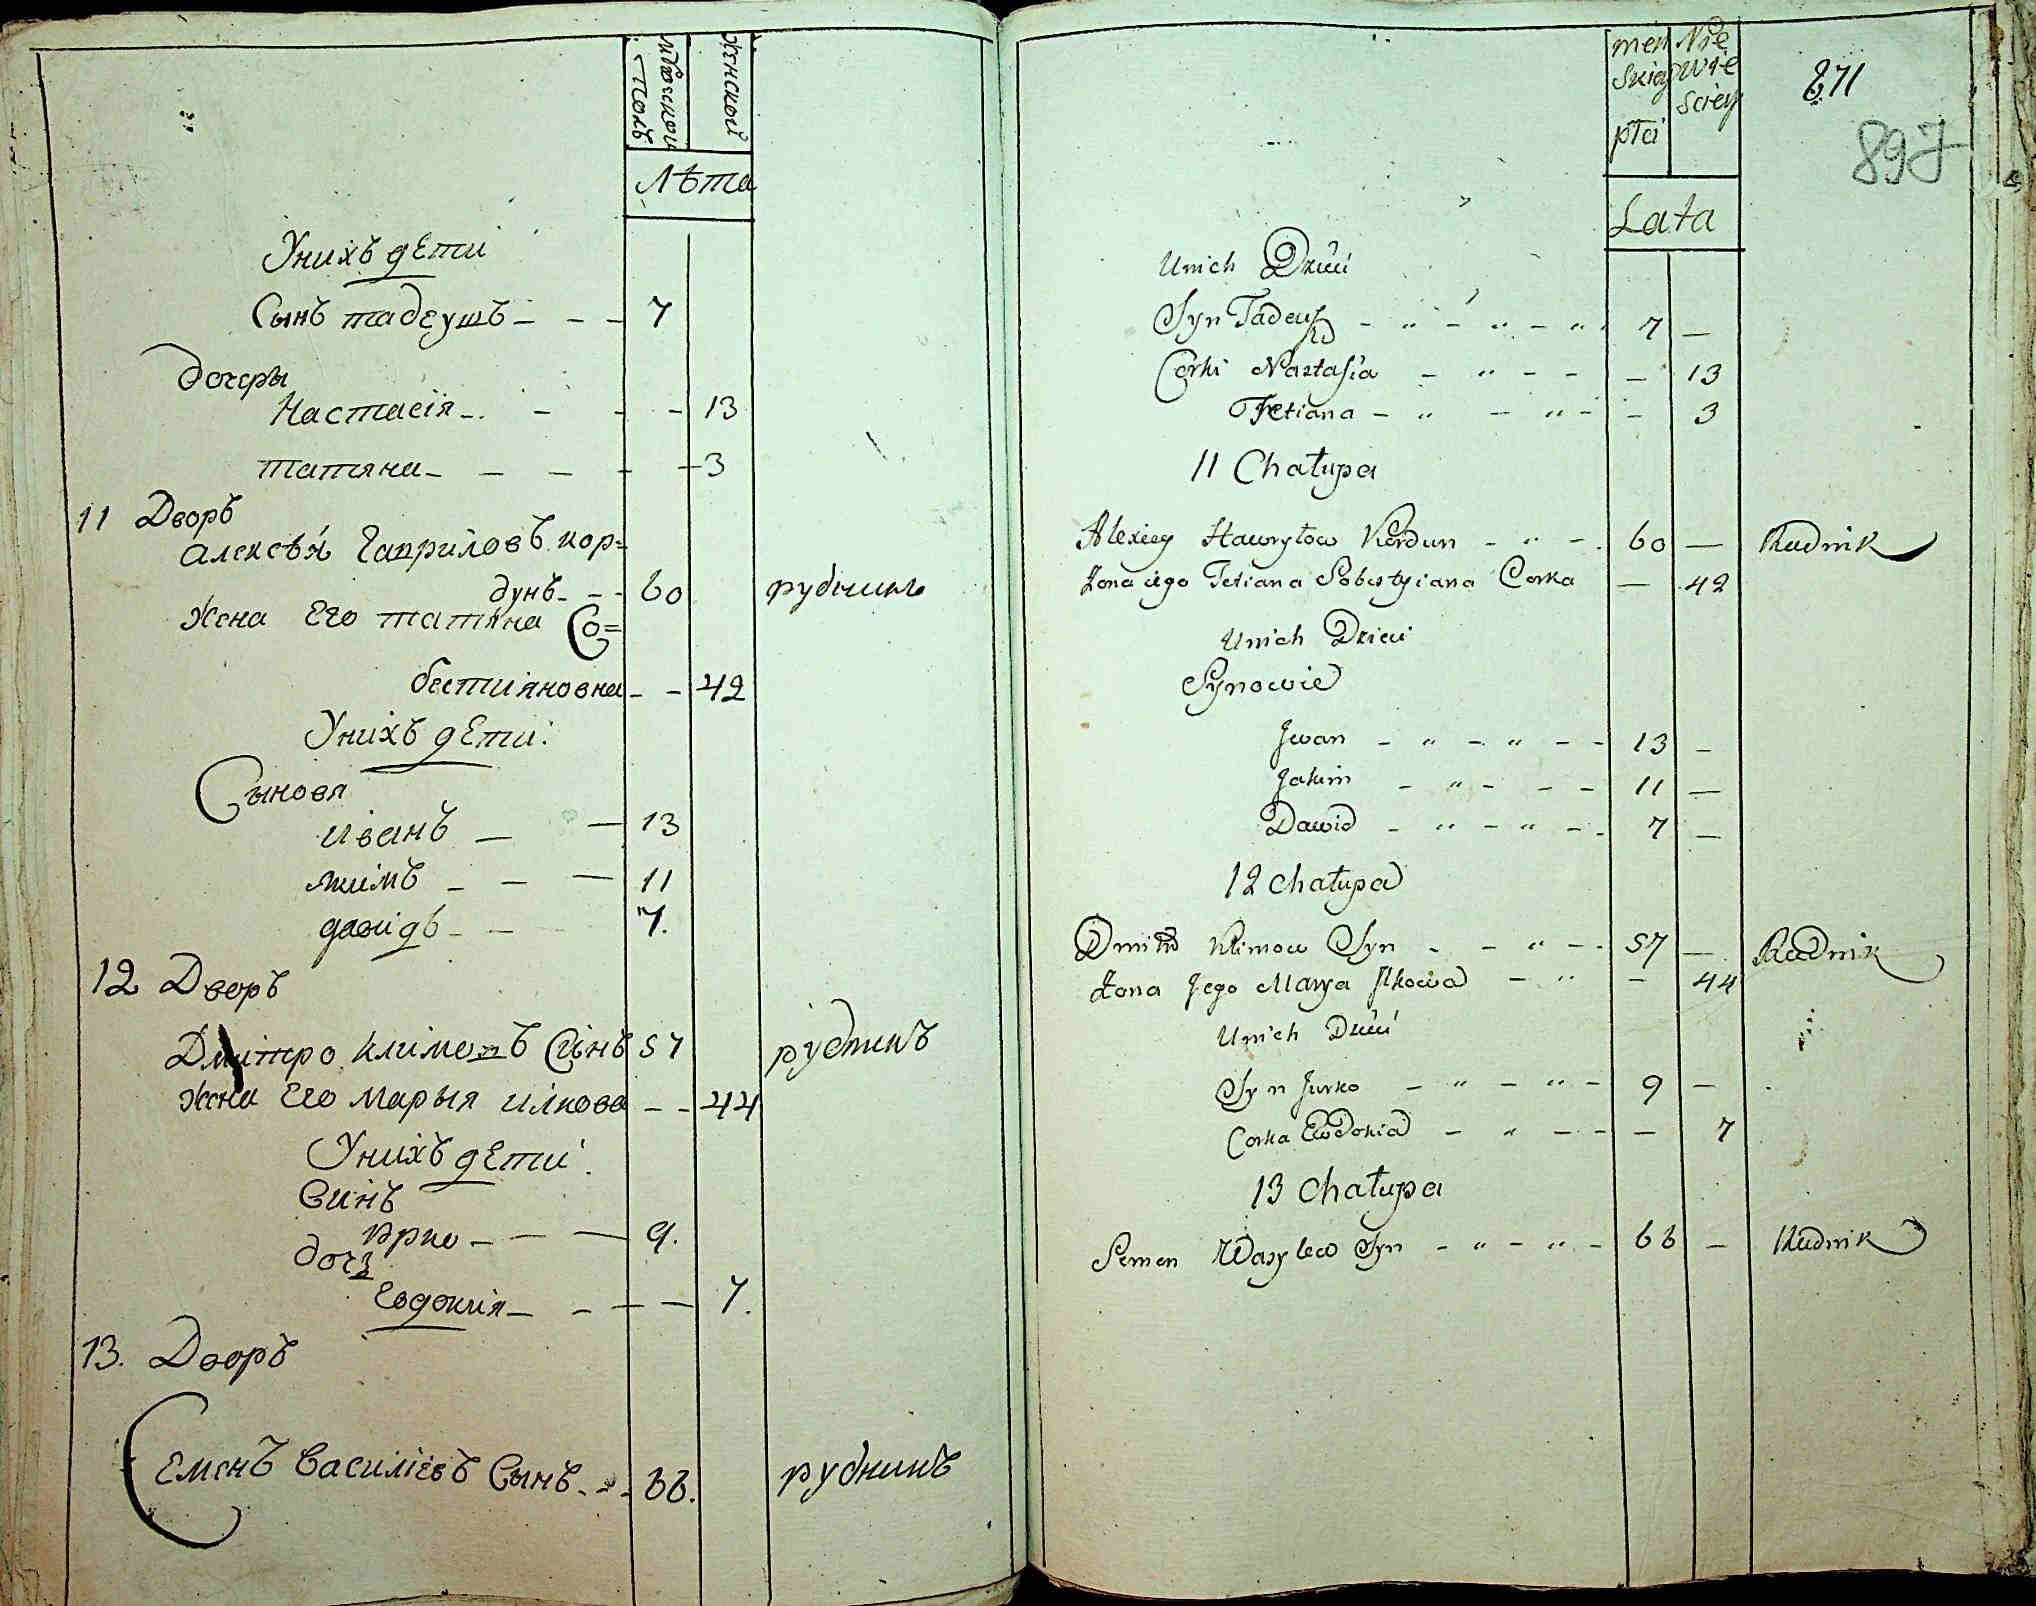 Мужской
Полъ
Женской
Лѣта
Унихъ дѣти
Сынъ тадеушъ - - - 7
дочеры
Настасія - - - - 13
татяна - - - - - 3
11 Дворъ
алексѣй гавриловъ кор=
дунъ - - - 60 рудникъ
жена Его татяна Со=
бестияновна - - 42
Унихъ дѣти:
Сыновя
иванъ - - 13
якимъ - - - 11
давидъ - - - 7.
12 Дворъ
Дмитро климовъ Синъ 57 рудникъ
жена Его марыя илкова - - 44
Унихъ дѣти.
Синъ
юрко - - - 9.
доч
Евдокия - - - - 7.
13. Дворъ
Семенъ василіевъ Сынъ - - - 66. рудникъ
męskiey
płci
Niewiesciey
871
897
Lata
Unich Dzieci
Syn Tadeusz - „ - „ - „ 7 -
Corki Nastasia - „ - - - 13
Tetiana - „ - „ - - 3
11 Chałupa
Alexiey Hawryłow Kordun - „ - . 60 - Rudnik
Zona iego Tetiana Sobestyiana Corka - 42
Unich Dzieci
Synowie
Jwan - „ - „ - - 13 -
Jakim - „ - - - 11 -
Dawid - „ - „ - . 7 -
12 chałupa
Dmitro Klimow Syn - - „ - . 57 - Rudnik
Zona Jego Marya Jlkowa - „ - 44
Unich Dzieci
Syn Jurko - „ - „ - 9 -
Corka Ewdokia - „ - - - 7
13 chałupa
Semen Wasylew Syn - „ - „ - 66 - Rudnik